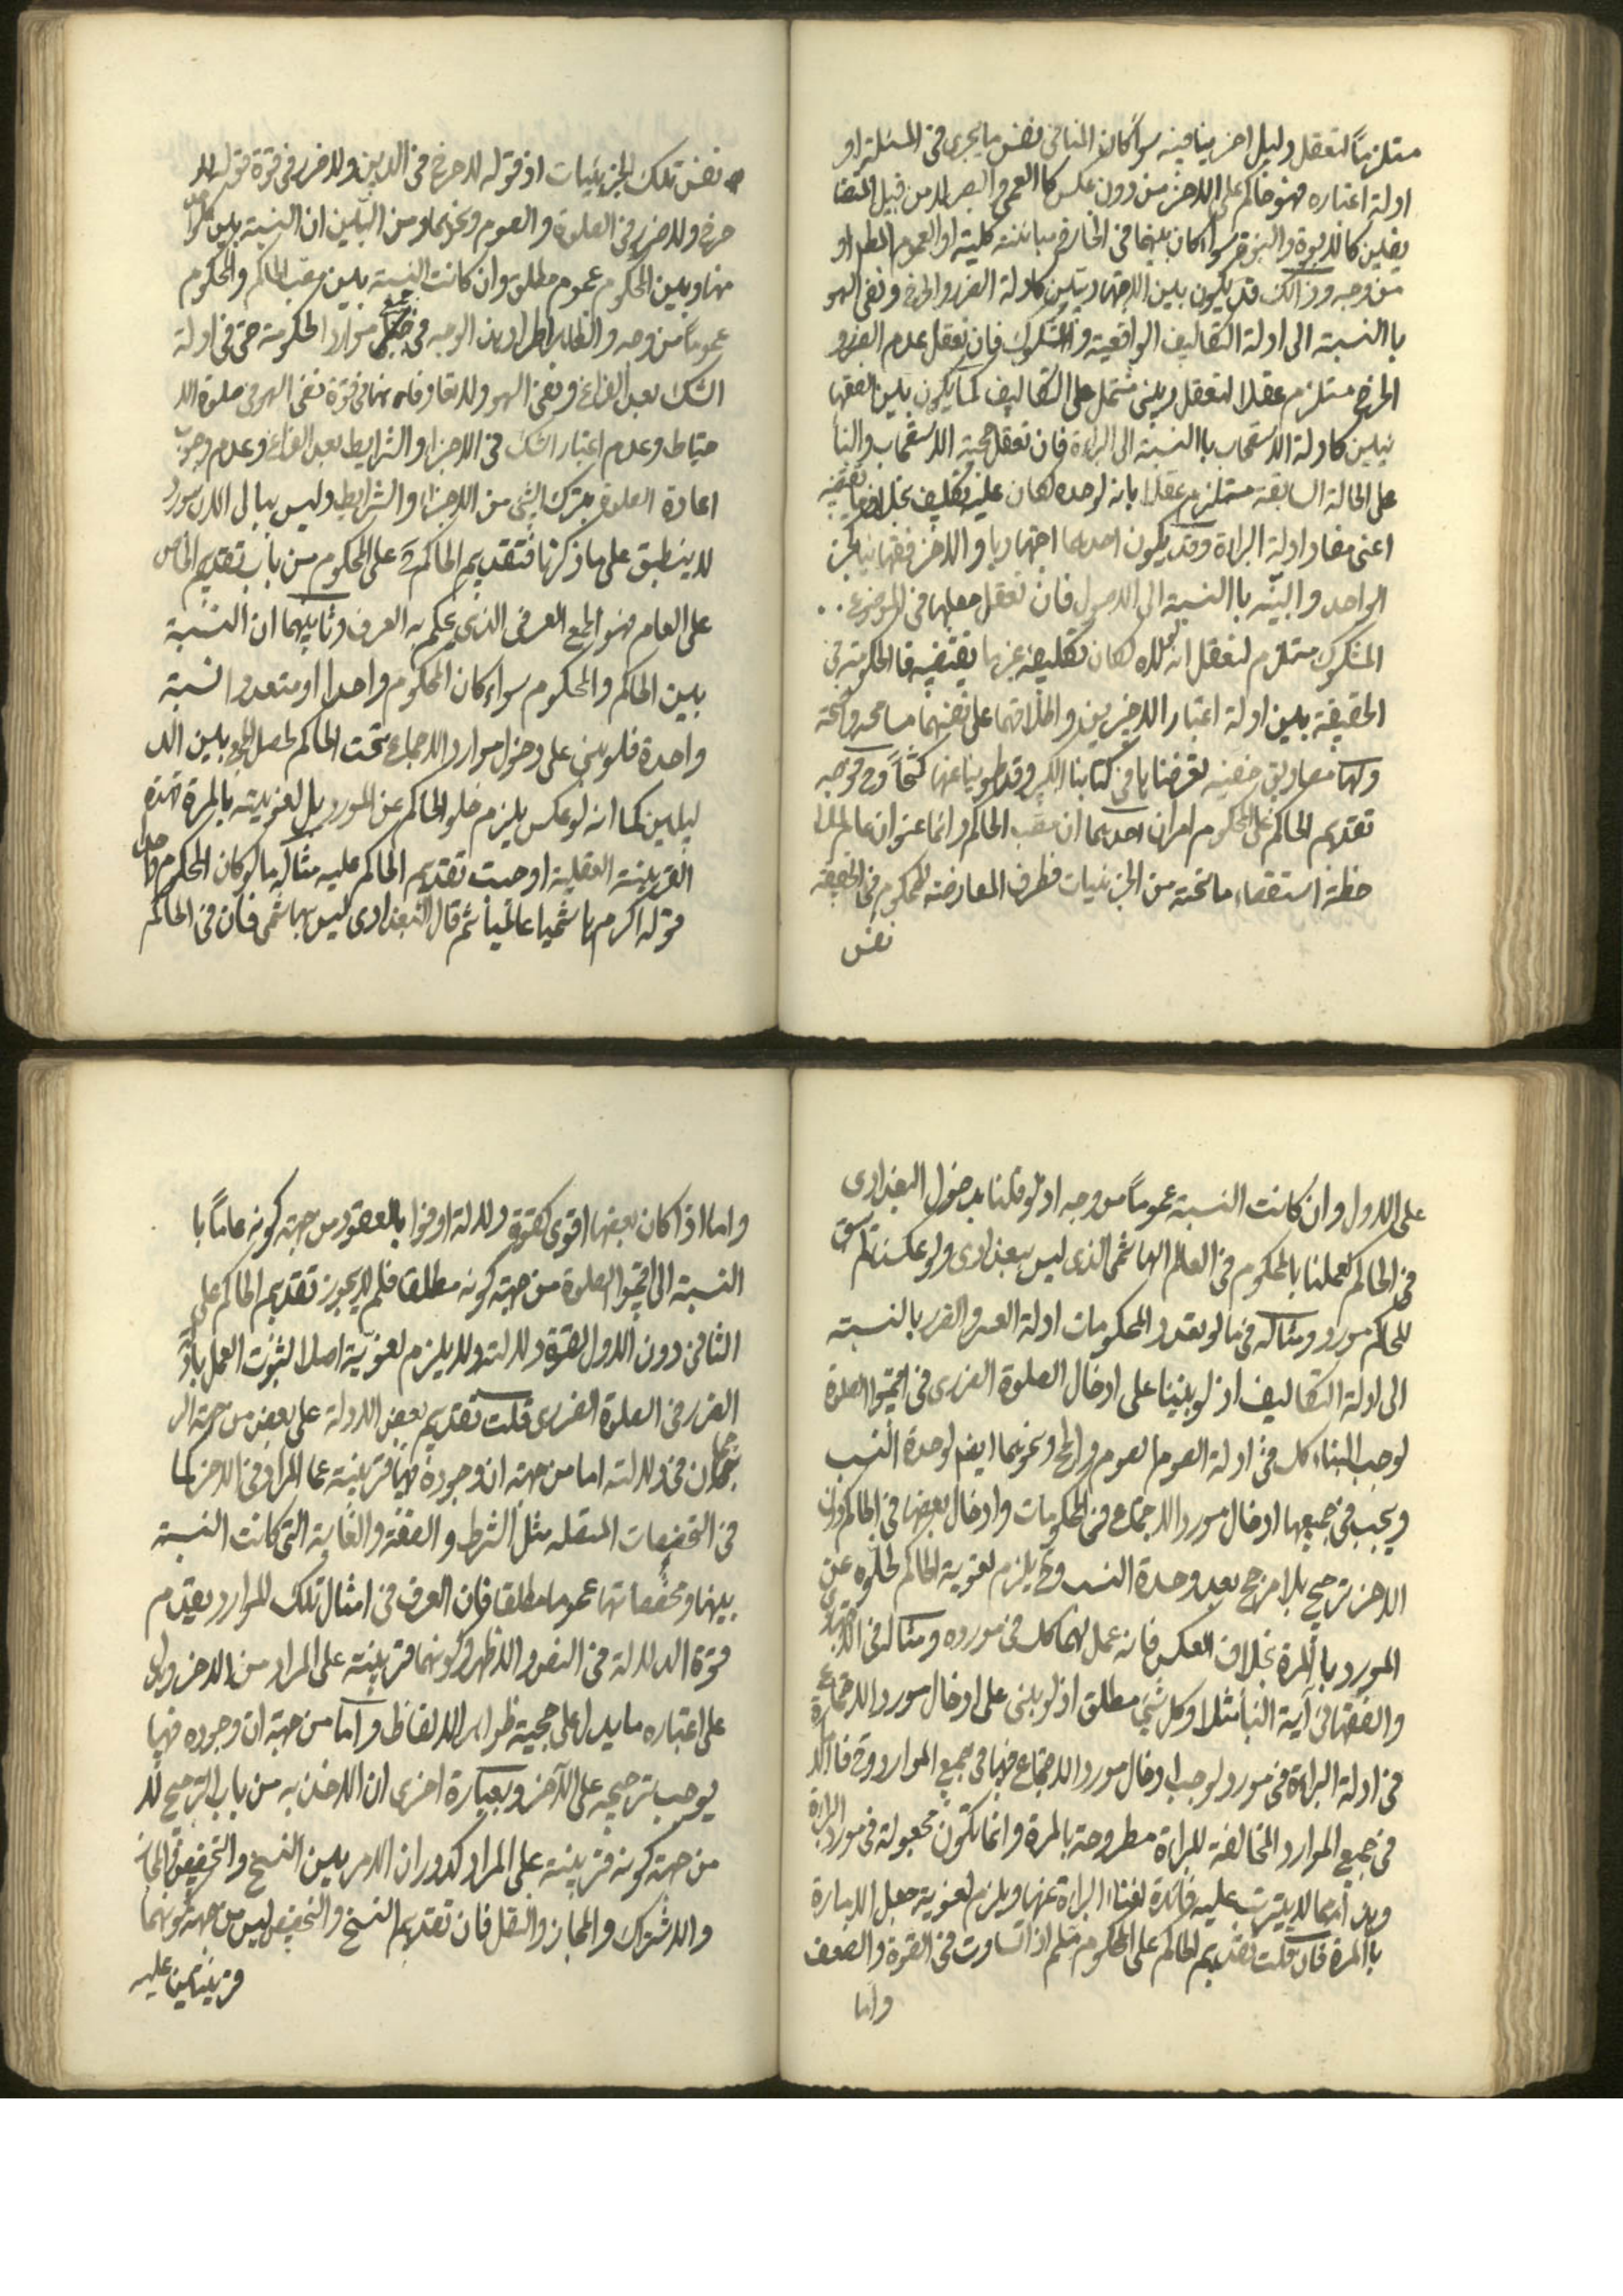 مستلزماً لتعقل دليل اخر ينافيه سواء كان المنافى نفس ما يجرى فى المسئلة او
ادلة اعتباره فهو حاكم على الاخر من دون عكس كالعمى والبصر لا من قبيل المتضا
يفين كالابوة والبنوة سواء كان بينهما فى الخارج مباينة كلية او العموم المطلق او
من وجه وذالك قد يكون بين الاجتهاديتين كادلة الضرر والحرج ونفى السهو
باالنسبة الى ادلة التكاليف الواقعية والشكوك فان تعقل عدم الضرر و
الحرج مستلزم عقلا لتعقل دينى مشتمل على التكاليف كما يكون بين الفقها
نيتين كادلة الاستصحاب باالنسبة الى البراءة فان تعقل حجية الاستصحاب والبنا
على الحالة السابقة مستلزم عقلا بانه لوحده لكان عليه تكليف بخلاف ما تقتضيه
اعنى مفاد ادلة البراءة وقد يكون احدهما اجتهاديا والاخر فقهائيا كخبر
الواحد والبينه باالنسبة الى الاصول فان تعقل جعلها فى الموضوع
المشكوك مستلزم لتعقل انه لولاه لكان تكليفه غير ما تقتضيه فالحكومة فى
الحقيقة بين ادلة اعتبار الاخيرين واطلاقهما على نفسهما مسامحه واضحة
ولهما مصاديق خفيه تعرضناها فى كتابنا الكبير وقد طوينا عنها كشحاً وفى توجيه
تقديم الحاكم على المحكوم امران احدهما ان مصب الحاكم دائما عنوان عام للملا
حظة استقصاء ما تحته من الجزئيات فطرف المعارضه للمحكوم فى الحقيقه
نفس
نفس تلك الجزئيات اذ قوله لا حرج فى الدين ولا ضرر فى قوة قوله لا
حرج ولا ضرر فى الصلوة والصوم ونحوهما ومن البين ان النسبة بين كل واحد
منها وبين المحكوم عموم مطلق وان كانت النسبة بين مصب الحاكم والمحكوم
عموماً من وجه والظاهر اطراد هذا الوجه فى جميع موارد الحكومة حتى فى ادلة
الشك بعد الفراغ ونفى السهو ولا تعاد فانهما فى قوة نفى السهو فى صلوة الا
حتياط وعدم اعتبار الشك فى الاجزاء والشرايط بعد الفراغ وعدم وجوب
اعادة الصلوة بترك شئ من الاجزاء والشرايط وليس ببالى الان مورد
لا ينطبق على ما ذكرنا فتقديم الحاكم على المحكوم من باب تقديم الخاص
على العام فهو الجمع العرفى الذى يحكم به العرف وثانيهما ان النسبة
بين الحاكم والمحكوم سواء كان المحكوم واحدا او متعددا نسبة
واحدة فلو بنى على دخول موارد الاجماع تحت الحاكم لحصل الجمع بين الد
ليلين كما انه لو عكس يلزم خلو الحاكم عن المورد بل لغويته بالمرة فهذه
القرينة العقلية اوجبت تقديم الحاكم عليه مثاله ما لو كان المحكوم واحدا
قوله اكرم هاشميا عالمياً ثم قال البغدادى ليس بهاشمى فان فى الحاكم
على الاول وان كانت النسبة عموماً من وجه اذ لو قلنا بدخول البغدادى
فى الحاكم لعملنا بالمحكوم فى العالم الهاشمى الذى ليس ببغدادى ولو عكسنا لم يبق
للحاكم مورد ومثاله فى ما لو تعدد المحكومات ادلة العسر والضرر بالنسبته
الى ادلة التكاليف اذ لو بنينا على ادخال الصلوة الضررى فى اقيموا الصلوة
لوجب البناء كك فى ادلة الصوم الصوم والحج ونحوهما ايضا لوحدة النسب
ويجب فى جميعها ادخال مورد الاجتماع فى المحكومات وادخال بعضها فى الحاكم دون
الاخر ترجيح بلا مرجح بعد وحدة النسب وح يلزم لغوية الحاكم لخلوه عن
المورد باالمرة بخلاف العكس فانه عمل لهما كل فى مورده ومثاله فى الاجتهادى
والفقها فى آية النبأ مثلا وكل شئ مطلق اذ لو بنى على ادخال مورد الاجتماع
فى ادلة البراءة فى مورد لوجب ادخال مورد الاجتماع فيها فى جميع الموارد وح فالامارة
فى جميع الموارد المخالفة للبراءة مطروحة بالمرة وانما تكون مجعولة فى مورد البراءة
وهذا مما لا يترتب عليه فائدة لغناء البراءة عنها ويلزم لغوية جعل الامارة
باالمرة فان قلت تقديم الحاكم على المحكوم مسلم اذا تساوت فى القوة والضعف
واما
واما اذا كان بعضها اقوى كقوة دلالة اوفوا بالعقود من جهة كونه عاماً با
النسبة الى اقيموا الصلوة من جهة كونه مطلقا فلم لا يجوز تقديم الحاكم على
الثانى دون الاول لقوة دلالته ولا يلزم لغوية اصلا لثبوت العمل بادلة
الضرر فى الصلوة الضررى قلت تقديم بعض الادلة على بعض من جهة الر
جحان فى دلالته اما من جهة ان وجوده فيها قرينة عما المراد فى الاخر كما
فى التخصيصات المتصله مثل الشرط والصفة والغاية التى كانت النسبة
بينها ومخصصاتها عموما مطلقا فان العرف فى امثال تلك الموارد يقدم
قوة الدلالة فى النص والاظهر وكونهما قرينة على المراد من الاخر ويدل
على اعتباره ما يدل على حجية ظواهر الالفاظ واما من جهة ان وجوده فيها
يوجب ترجيحه على الآخر وبعبارة اخرى ان الاخذ به من باب الترجيح لا
من جهة كونه قرينة على المراد كدوران الامر بين النسخ والتخصيص والمجاز
والاشتراك والمجاز والنقل فان تقديم النسخ والتخصيص ليس من جهة كونهما
قرينتين عليه